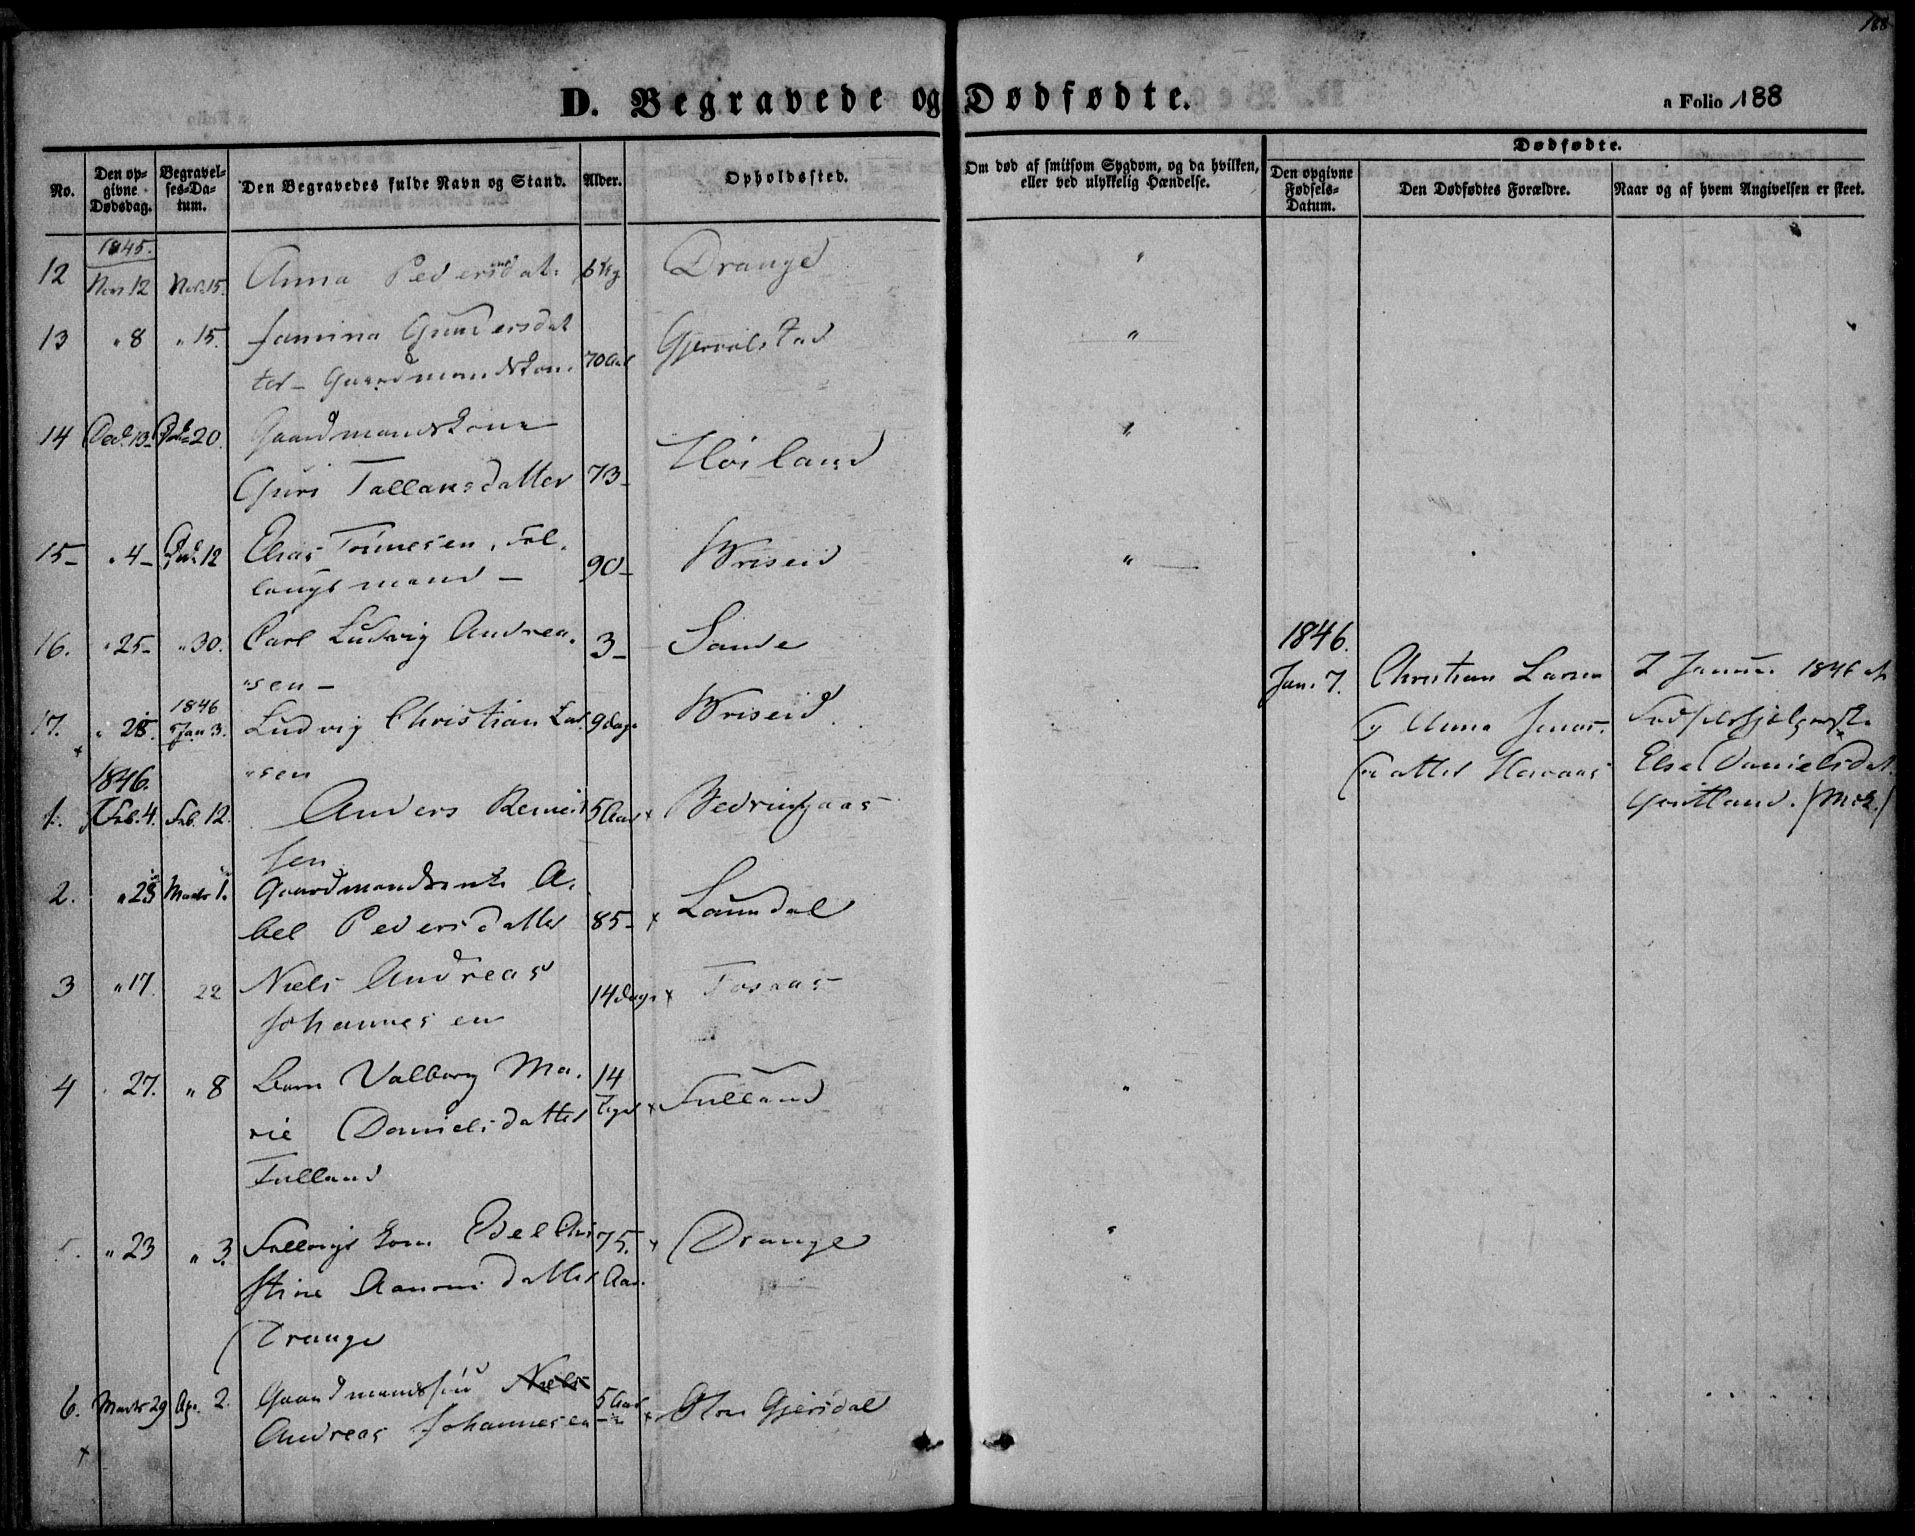 188
D. Begravede og Dødfødte.
a Folio 188
No.
Den op-
givne
Dødsdag.
Begravel-
ses-Da-
tum.
Den Begravedes fulde Navn og Stand.
Alder.
Opholdssted.
Om død af smitsom Sygdom, og da hvilken,
eller ved ulykkelig Hændelse.
Dødfødte.
Den opgivne
Fødsels-
Datum.
Den Dødfødtes Forældre.
Naar og af hvem Angivelsen er skeet.
1845.
12 Nov 12 Nov. 15. Anna Pedersdat. Drange "
13 " 8 " 15. Jamina Gundersdat
ter - Gaardmandskone 70 Aar Gjervolstad "
14 Dec. 13 - Dec. 20. Gaardmandskone
Guri Tallaksdatter 73 - Høiland "
15 - " 4 - Dec. 12 Elias Tønnesen, Fol.
laugsmand - 90 - Wriseid "
16. " 25 - " 30. Carl Ludvig Andrea.
sen - 3 - Sande
17. " 25. 1846 Jan 3. Ludvig Christian Lar
sen 9 dage Wriseid.
1846.
Jan. 7. Christian Larsen
og Anna Jonas.
datter Haraas
7 Januar 1846 af
Fødselshjelperske
Else Danielsdat.
1846.
1. Feb. 4. Feb. 12. Anders Reiner
sen 5 Aar x Bedringaas
2. " 23 Marts 1. Gaardmandsenke A.
bel Pedersdatter 85 - x Laundal
3 " 17. 22 Niels Andreas
Johannesen 14 dage x Fosaas
4 27. " 8 Barn Valborg Ma.
rie Danielsdatter
Fulland 14
Uger x Fulland "
5. " 23 " 3. Follaugs kone Edel Chri
stine Aanonsdatter
Drange 75.
Aar. x Drange "
6. Marts 29 Apr. 2. Gaardmandssøn Niels
Andreas Johannesen 5 Aar x Gjersdal